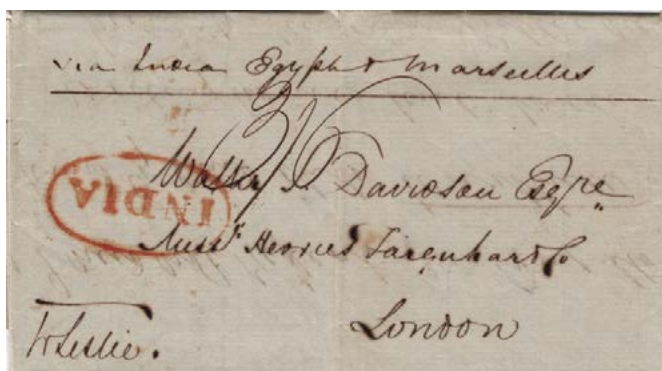 via India Egypt & Marseilles
3/6
Walter S. Davidson Esqre
INDIA
Messrs Herries Farquhar & Co
London
W Leslie.